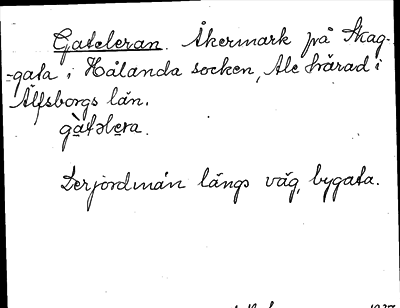 Gateleran. Åkermark på Skag-
-gata i Hålanda socken, Ale härad i
Älfsborgs län.
gàtəlera.
Lerjordmån längs väg, bygata.